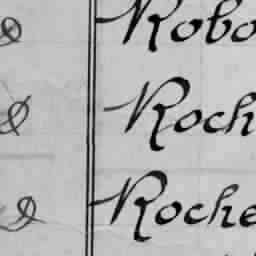 Robo
Roch
Roche